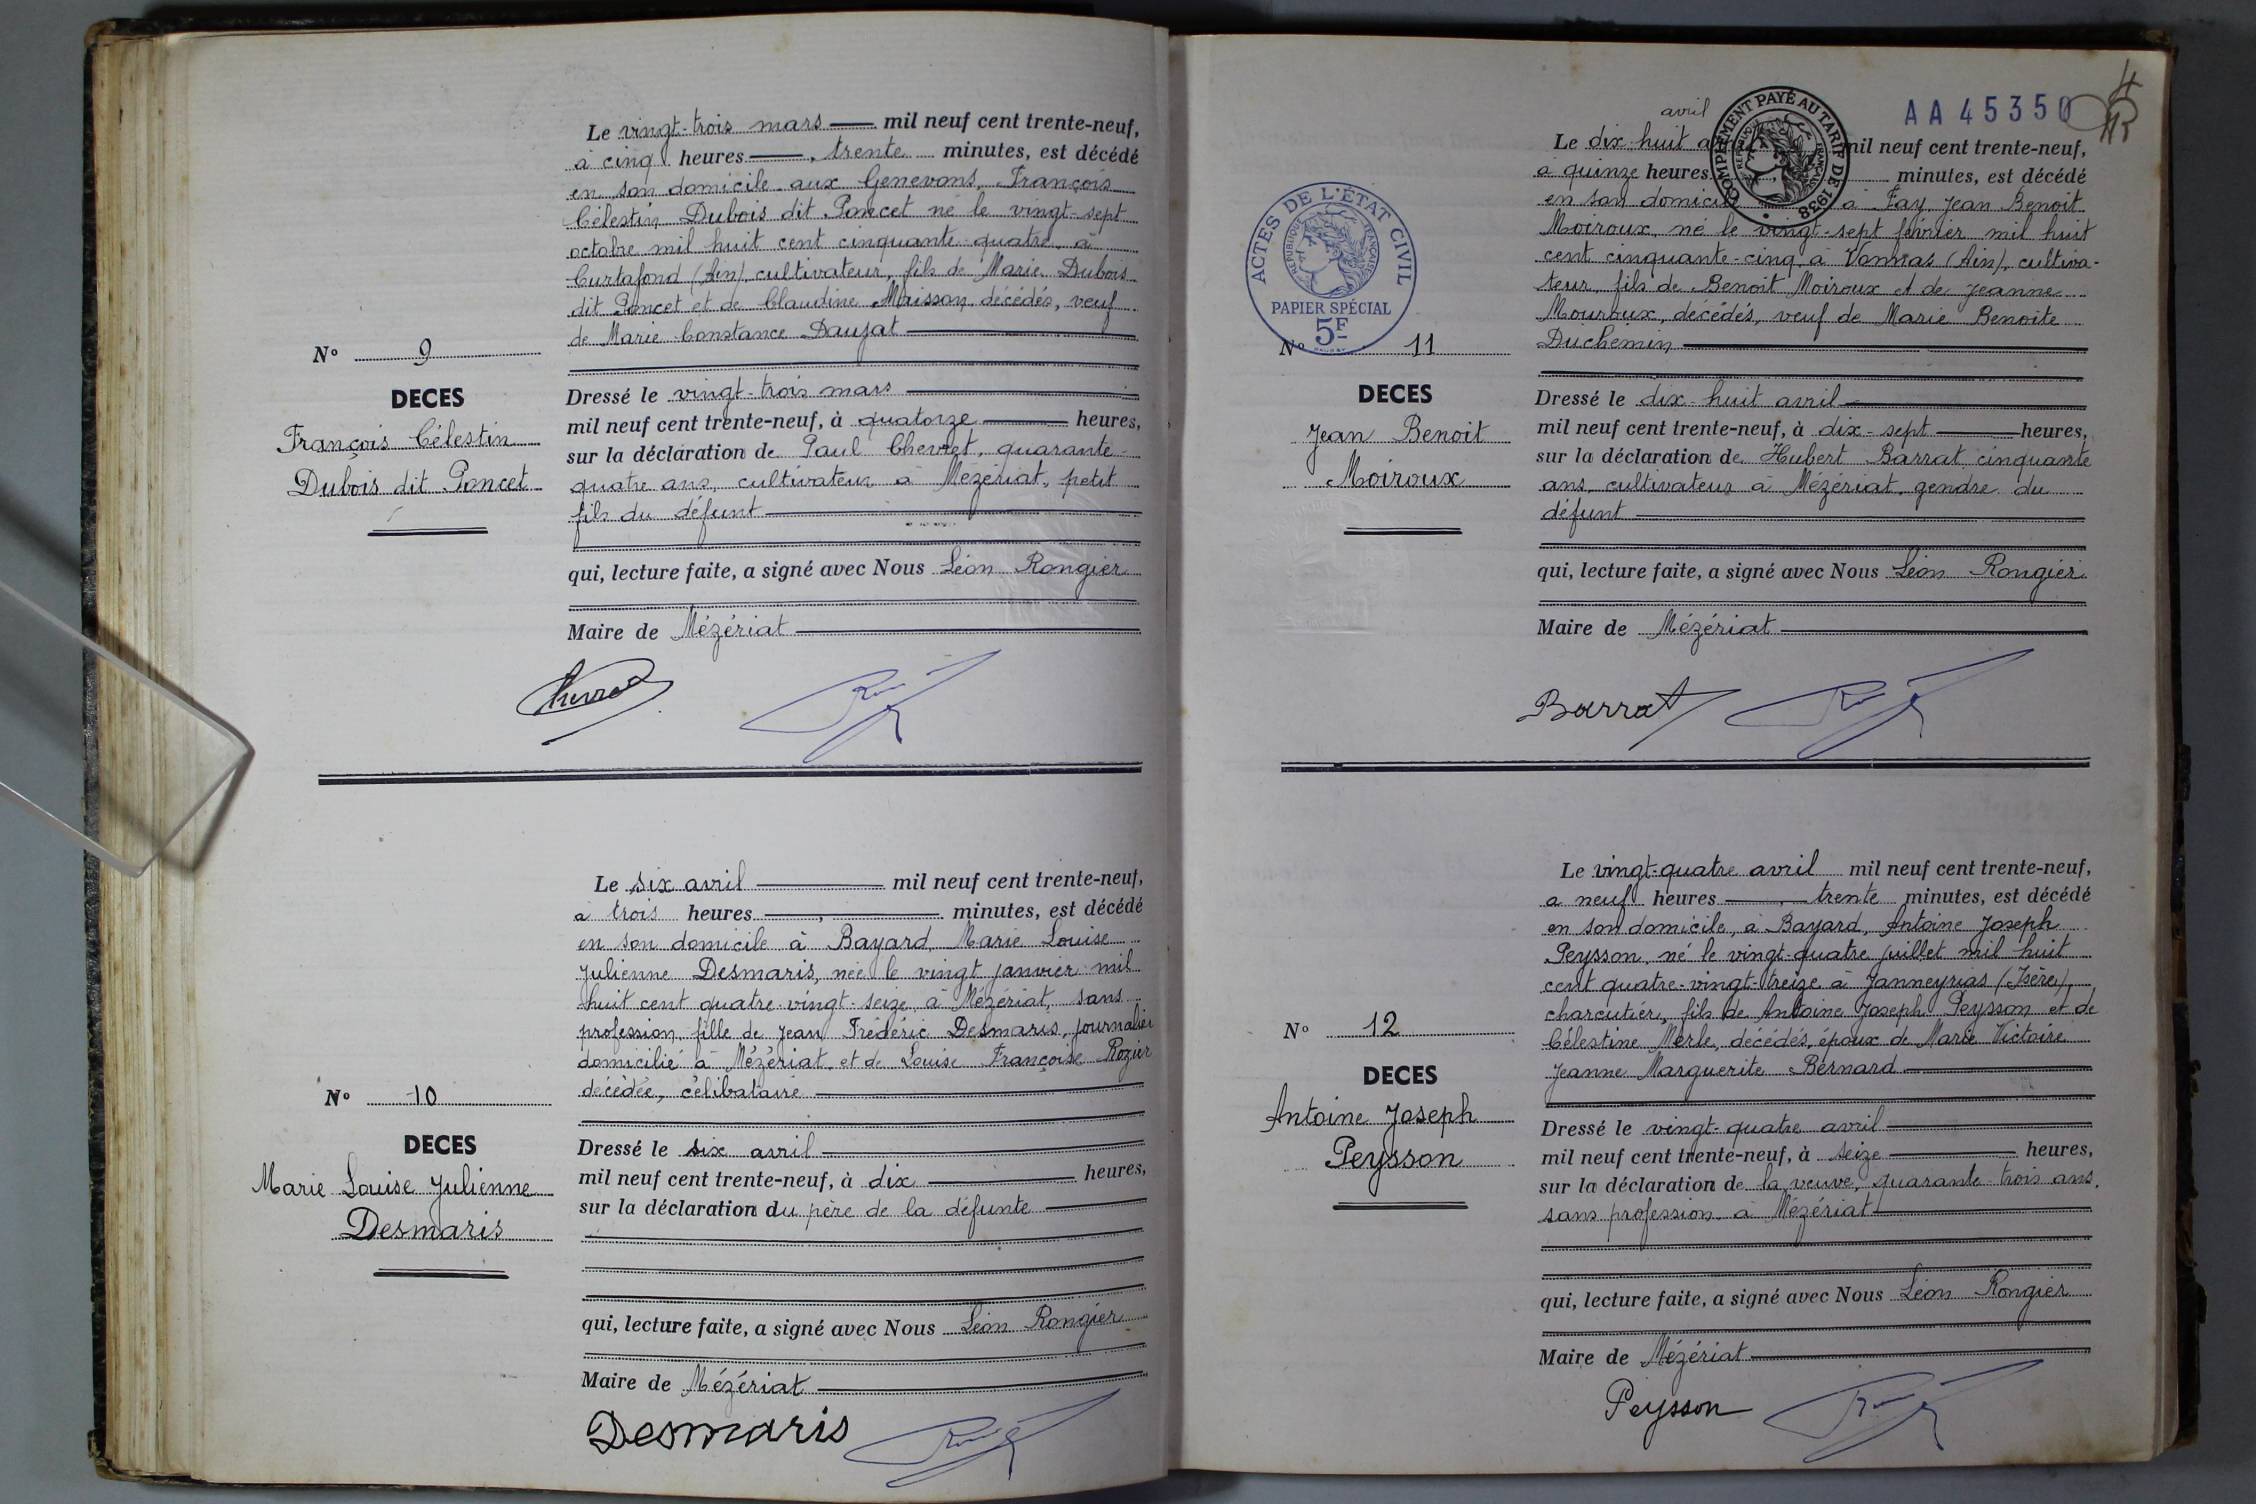 Le vingt-trois mars mil neuf cent trente-neuf,
a cinq heures, trente minutes, est décédé
en son domicile aux Genevons, François
Célestin Dubois dit Poncet né le vingt-sept
octobre mil huit cent cinquante-quatre, à
Curtafond (Ain), cultivateur, fils de Marie Dubois
dit Poncet et de Claudine Maisson, décédés, veuf
de Marie Constance Daujat
N° 9
DECES
François Célestin
Dubois dit Poncet
Dressé le vingt-trois mars
mil neuf cent trente-neuf, à quatorze heures,
sur la déclaration de Paul Chevret, quarante-
quatre ans, cultivateur à Mézériat, petit
fils du défunt
qui, lecture faite, a signé avec Nous Léon Rongier
Maire de Mézériat
Le six avril mil neuf cent trente-neuf,
a trois heures, minutes, est décédé
en son domicile à Bayard, Marie Louise
Julienne Desmaris, née le vingt janvier mil
huit cent quatre-vingt-seize, à Mézériat, sans
profession, fille de Jean Frédéric Desmaris, journalier
domicilié à Mézériat, et de Louise Françoise Rozier
décédée, célibataire
N° 10
DECES
Marie Louise Julienne
Desmaris
Dressé le six avril
mil neuf cent trente-neuf, à dix heures,
sur la déclaration du père de la défunte
qui, lecture faite, a signé avec Nous Léon Rongier
Maire de Mézériat
Desmaris
AA45350
COMPLÉMENT PAYÉ AU TARIF DE 1938
RÉPUBLIQUE FRANÇAISE
avril
Le dix huit a mil neuf cent trente-neuf,
a quinze heures minutes, est décédé
en son domicile à Fay, Jean Benoit
Moiroux, né le vingt-sept février mil huit
cent cinquante-cinq à Vonnas (Ain), cultiva-
teur, fils de Benoit Moiroux et de Jeanne
Mouroux, décédés, veuf de Marie Benoite
Duchemin
ACTES DE L'ÉTAT CIVIL
RÉPUBLIQUE FRANÇAISE
PAPIER SPÉCIAL
5F
N° 11
DECES
Jean Benoit
Moiroux
Dressé le dix-huit avril
mil neuf cent trente-neuf, à dix-sept heures,
sur la déclaration de Hubert Barrat, cinquante
ans, cultivateur à Mézériat, gendre du
défunt
qui, lecture faite, a signé avec Nous Léon Rongier
Maire de Mézériat
Barrat
Le vingt-quatre avril mil neuf cent trente-neuf,
a neuf heures, trente minutes, est décédé
en son domicile, à Bayard, Antoine Joseph
Peysson, né le vingt-quatre juillet mil huit
cent quatre-vingt-treize à Janneyrias (Isère),
charcutier, fils de Antoine Joseph Peysson et de
Célestine Merle, décédés, époux de Marie Victoire
Jeanne Marguerite Bernard
N° 12
DECES
Antoine Joseph
Peysson
Dressé le vingt-quatre avril
mil neuf cent trente-neuf, à seize heures,
sur la déclaration de la veuve, quarante-trois ans,
sans profession à Mézériat
qui, lecture faite, a signé avec Nous Léon Rongier
Maire de Mézériat
Peysson